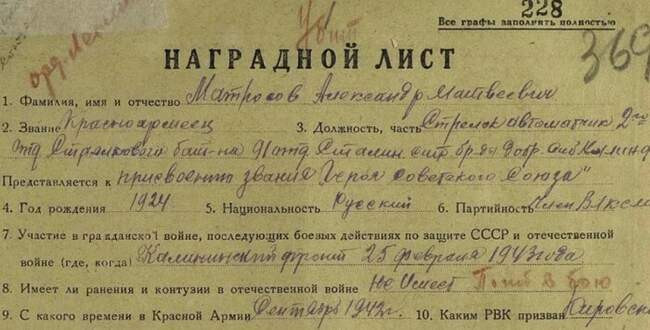 Убит
228
Все графы заполнять полностью
орд. Ленина
369
НАГРАДНОЙ ЛИСТ
1. Фамилия, имя и отчество Матросов Александр Матвеевич
2. Звание Красноармеец 3. Должность, часть Стрелок автоматчик 2го
отд. Стрелкового бат-на 91 отд Сталин. стр. бр-ды добр.
Представляется к присвоению звания "Героя Советского Союза"
4. Год рождения 1924 5. Национальность Русский 6. Партийность Член ВЛКСМ
7. Участие в гражданской войне, последующих боевых действиях по защите СССР и отечественной
войне (где, когда) Калининский фронт 25 февраля 1943 года
8. Имеет ли ранения и контузии в отечественной войне Не имеет Погиб в бою
9. С какого времени в Красной Армии Сентябрь 1942г. 10. Каким РВК призван Кировск